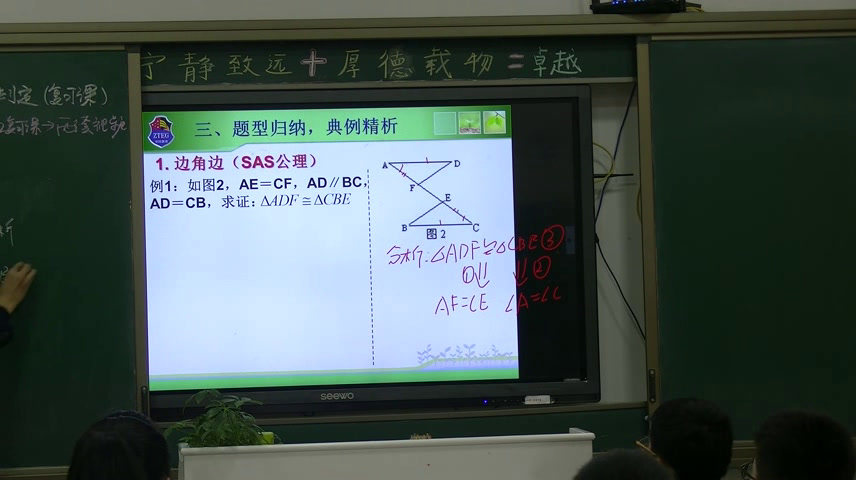 宁静致远十厚德载物=卓越
判定(复习课)
ZTEG
三、题型归纳，典例精析
1. 边角边（SAS公理）
例1：如图2，AE＝CF，AD∥BC，
AD＝CB，求证：△ADF≅△CBE
A D
F
E
B C
图2
分析：△ADF≌△CBE ③
①⇓ ⇓②
AF=CE ∠A=∠C
析
seewo